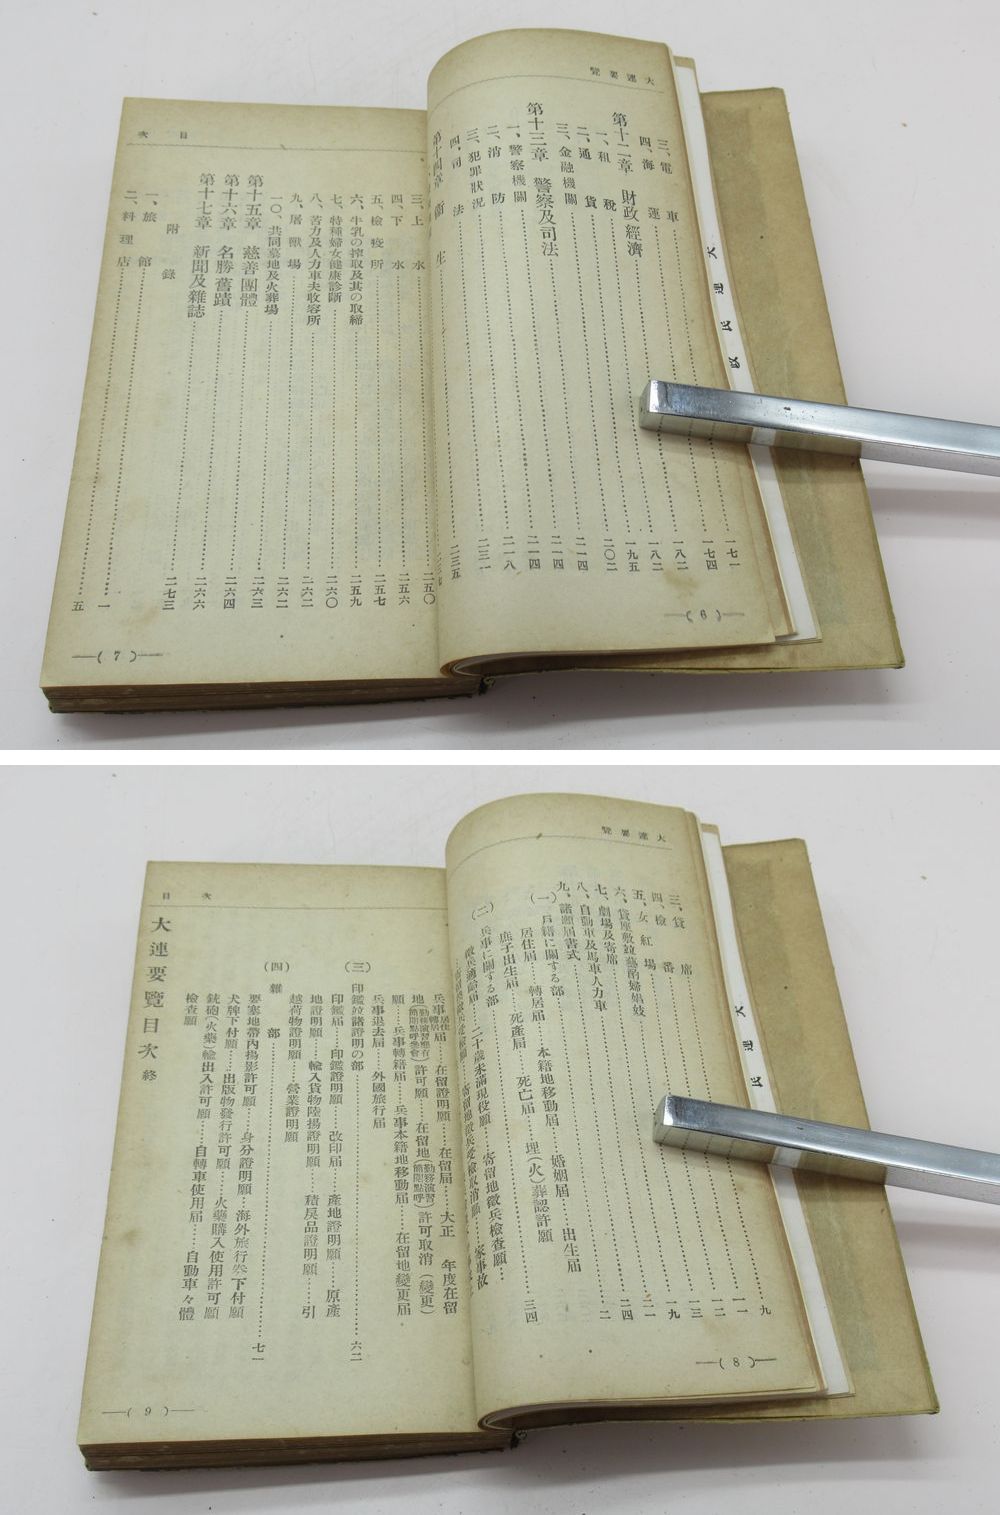 大連要覽
三、電車……一七一
四、海運……一七四
第十二章 財政經濟……一八二
一、租税……一八二
二、通貨……一九五
三、金融機關……二〇二
第十三章 警察及司法……二一四
一、警察機關……二一四
二、消防……二一八
三、犯罪狀況……二三一
四、司法……二三五
第十四章 衞生
―( 6 )―
目次
三、上水……二五〇
四、下水……二五六
五、檢疫所……二五七
六、牛乳の搾取及其の取締……二五九
七、特種婦女健康診斷……二六〇
八、苦力及人力車夫收容所……二六二
九、屠獸場……二六二
一〇、共同墓地及火葬場……二六二
第十五章 慈善團體……二六三
第十六章 名勝舊蹟……二六四
第十七章 新聞及雜誌……二六六
附錄……二七三
一、旅館……一
二、料理店……五
―( 7 )―
大連民政
大連要覽
三、貸席……九
四、檢番……一一
五、女紅場……一二
六、貸座敷竝藝酌婦娼妓……一三
七、劇場及寄席……一九
八、自動車及馬車人力車……二一
九、諸願屆書式……二四
(一)戶籍に關する部……二
居住屆……轉居屆……本籍地移動屆……婚姻屆……出生屆
庶子出生屆……死產屆……死亡屆……埋(火)葬認許願
(二)兵事に關する部……三四
徵兵適齡屆……二十歲未滿現役願……寄留地徵兵檢查願…
―( 8 )―
目次
兵事居住轉居屆……在留證明願……在留屆……大正 年度在留
地(勤務演習簡閱點呼參會)許可願……在留地(勤務演習簡閱點呼)許可取消(變更)
願……兵事轉籍屆……兵事本籍地移動屆……在留地變更屆
兵事退去屆……外國旅行屆
(三)印鑑竝諸證明の部……六二
印鑑屆……印鑑證明願……改印屆……產地證明願……原產
地證明願……輸入貨物陸揚證明願……積戾品證明願……引
越荷物證明願……營業證明願
(四)雜部……七一
要塞地帶內撮影許可願……身分證明願……海外旅行券下付願
犬牌下付願……出版物發行許可願……火藥購入使用許可願
銃砲(火藥)輸出入許可願……自轉車使用屆……自動車々體
檢查願
大連要覽目次 終
―( 9 )―
大連民